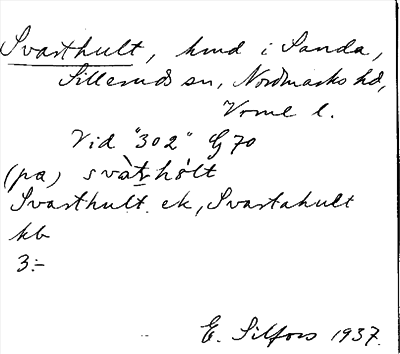 Svarthult, hmd i Sanda,
Silleruds sn, Nordmarks hd,
Vrml l.
Vid "302" G 70
(pa) svàt̀hólt
Svarthult. ek, Svartahult
kb
3:-
E. Silfors 1937.